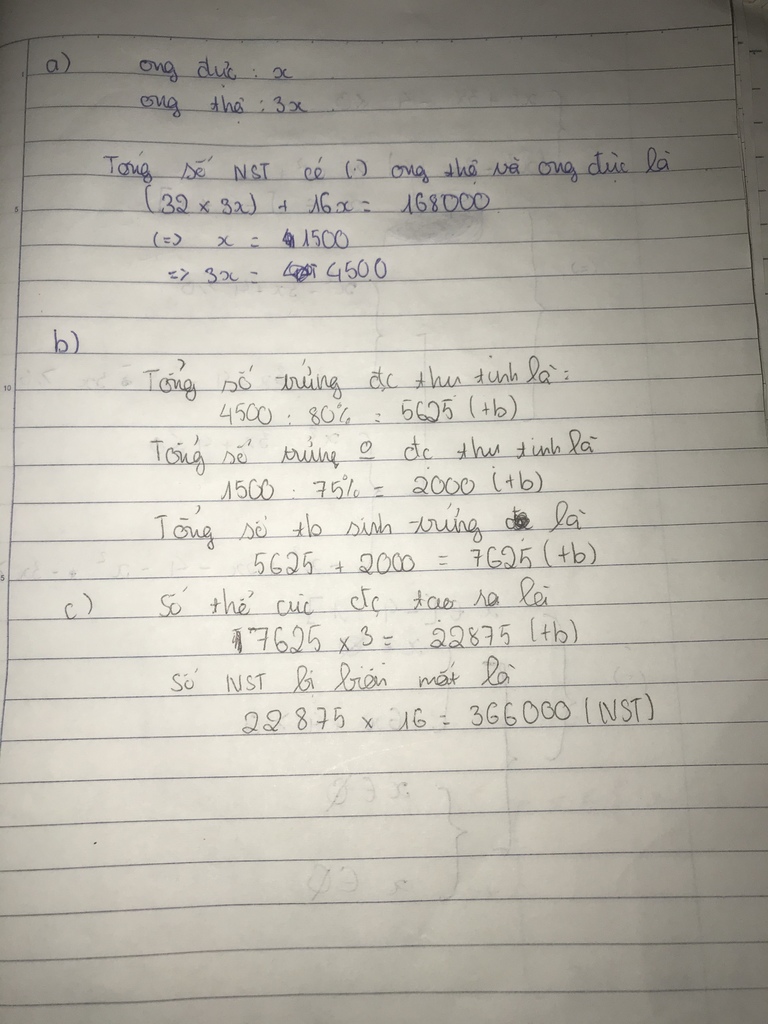 a) ong đực : x
ong thợ : 3x
Tổng số NST có (.) ong thợ và ong đực là
(32 x 3x) + 16x = 168000
(=> x = 1500
=> 3x = 4500
b)
Tổng số trứng đc thụ tinh là:
4500 : 80% = 5625 (tb)
Tổng số trứng o đc thụ tinh là
1500 : 75% = 2000 (tb)
Tổng số tb sinh trứng là
5625 + 2000 = 7625 (tb)
c) Số thể cực đc tạo ra là
7625 x 3 = 22875 (tb)
Số NST bị biến mất là
22875 x 16 = 366000 (NST)